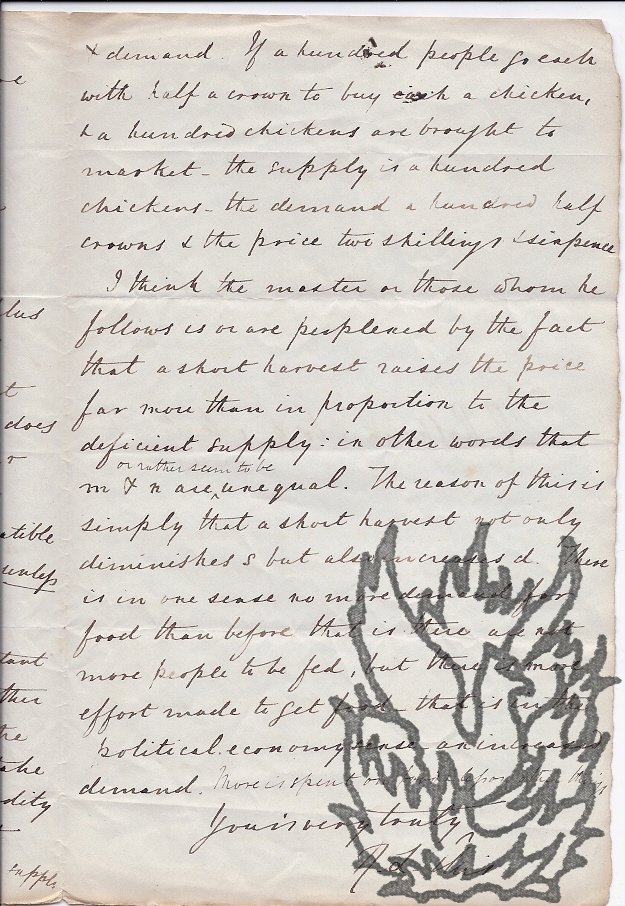 & demand. If a hundred people go each
with half a crown to buy each a chicken,
& a hundred chickens are brought to
market - the supply is a hundred
chickens - the demand a hundred half
crowns & the price two shillings & sixpence
I think the master or those whom he
follows is or are perplexed by the fact
that a short harvest raises the price
far more than in proportion to the
deficient supply: in other words that
or rather seem to be
m & n are unequal. The reason of this is
simply that a short harvest not only
diminishes s but also increases d. There
is in one sense no more demand for
food than before that is there are not
more people to be fed, but there is more
effort made to get food - that is in the
political economy sense an increased
demand. More is spent on
Yours very truly
lus
t
does
r
atible
tant
ther
he
take
dity
suppl